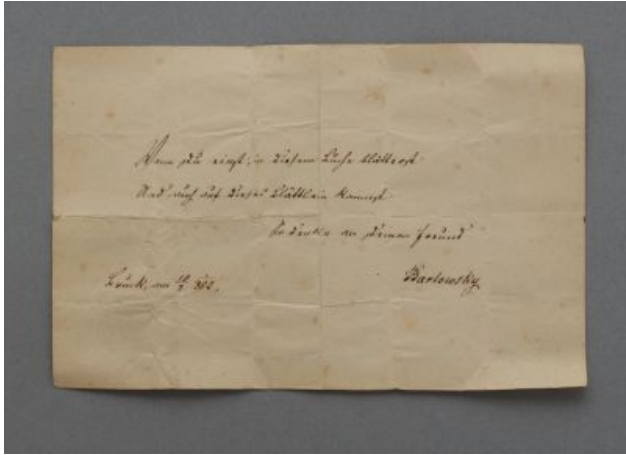 Wenn du einst in diesem Buche blätterst
Und auch auf dieses Blättlein kommst
So denke an deinen Freund
Bruck, am 882.
Barlowsky